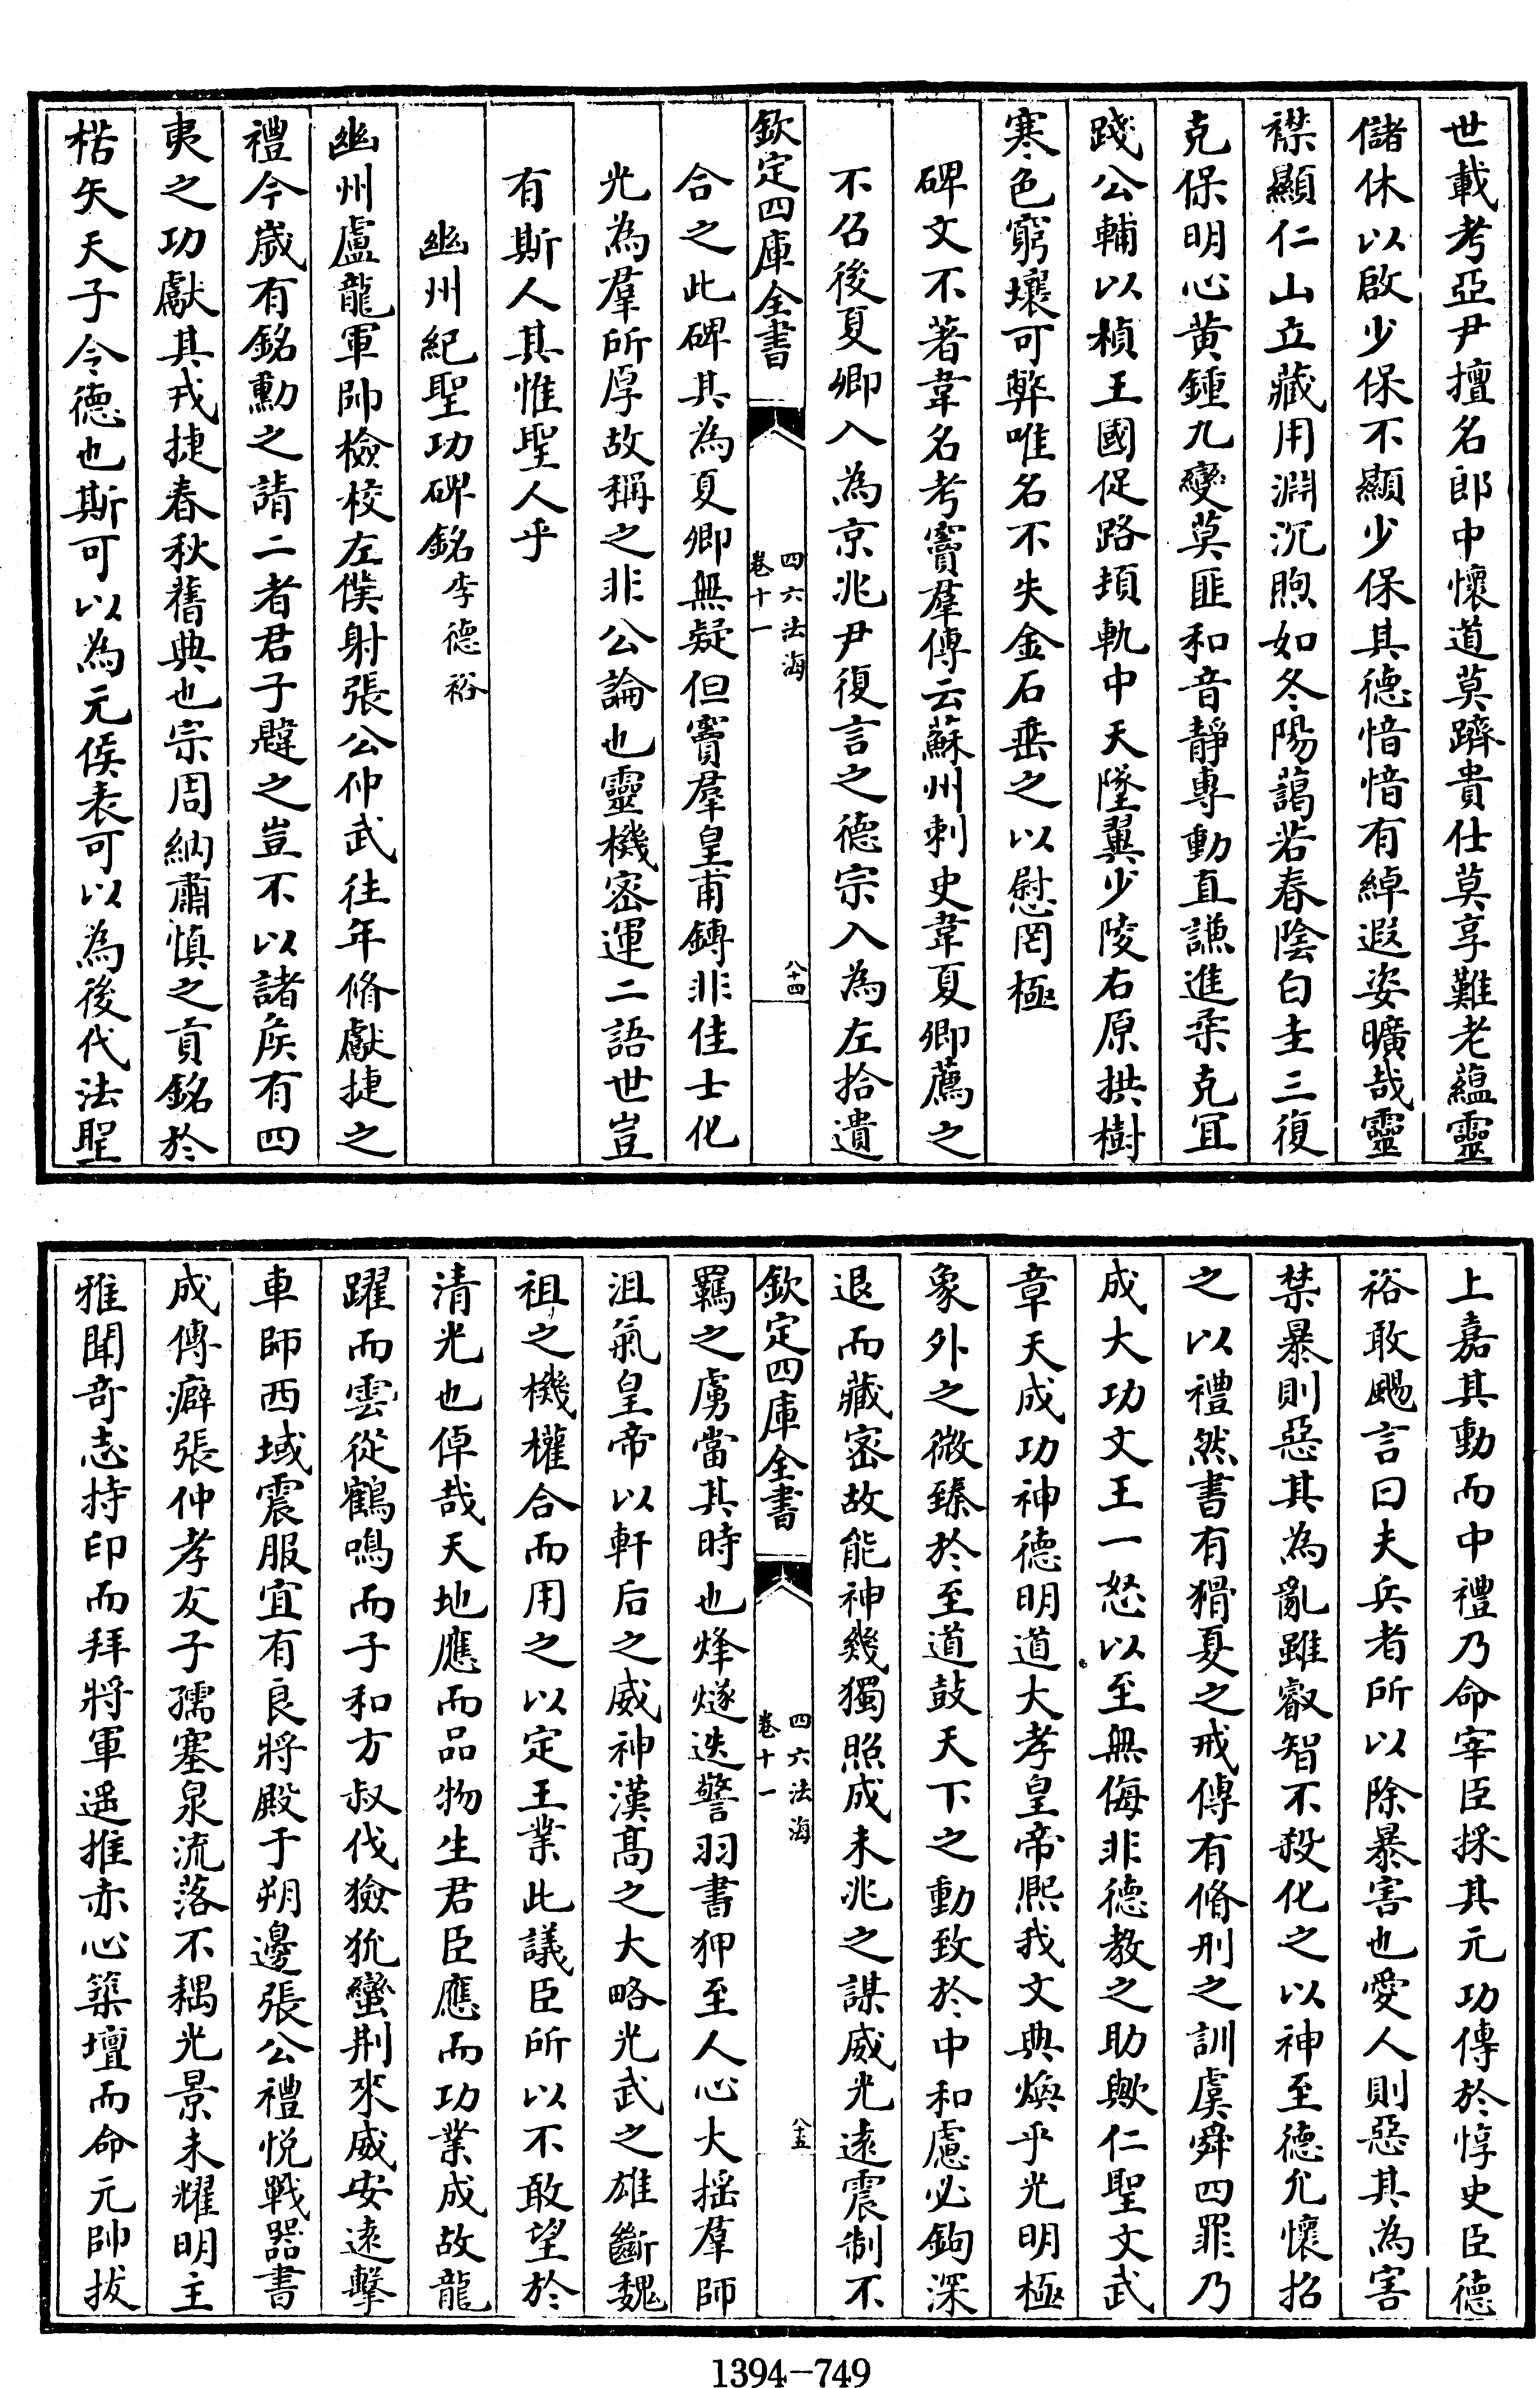 世載考亞尹擅名郎中懷道莫躋貴仕莫享難老藴靈
儲休以啟少保不顯少保其德愔愔有綽遐姿曠哉靈
襟顯仁山立藏用淵沉煦如冬陽藹若春陰白圭三復
克保明心黄鍾九變莫匪和音靜專動直謙進柔克冝
踐公輔以楨王國促路頓軌中天墜翼少陵右原拱樹
寒色窮壤可弊唯名不失金石垂之以慰罔極
碑文不著韋名考竇羣傳云蘇州刺史韋夏卿薦之
不召後夏卿入為京兆尹復言之德宗入為左拾遺
欽定四庫全書
四六法海
卷十一
八十四
合之此碑其為夏卿無疑但竇羣皇甫鎛非佳士化
光為羣所厚故稱之非公論也靈機密運二語世豈
有斯人其惟聖人乎
幽州紀聖功碑銘李德裕
幽州盧龍軍帥檢校左僕射張公仲武往年脩獻捷之
禮今嵗有銘勳之請二者君子韙之豈不以諸侯有四
夷之功獻其戎捷春秋舊典也宗周納肅慎之貢銘於
楛矢天子令德也斯可以為元侯表可以為後代法聖
上嘉其動而中禮乃命宰臣採其元功傳於惇史臣德
裕敢颺言曰夫兵者所以除暴害也愛人則惡其為害
禁暴則惡其為亂雖叡智不殺化之以神至德允懷招
之以禮然書有猾夏之戒傳有脩刑之訓虞舜四罪乃
成大功文王一怒以至無侮非德教之助歟仁聖文武
章天成功神德明道大孝皇帝熙我文典煥乎光明極
象外之微臻於至道鼓天下之動致於中和慮必鉤深
退而藏密故能神幾獨照成未兆之謀威光遠震制不
欽定四庫全書
四六法海
卷十一
八十五
羈之虜當其時也烽燧迭警羽書狎至人心大揺羣師
沮氣皇帝以軒后之威神漢高之大略光武之雄斷魏
祖之機權合而用之以定王業此議臣所以不敢望於
清光也倬哉天地應而品物生君臣應而功業成故龍
躍而雲從鶴鳴而子和方叔伐獫狁蠻荆來威安遠擊
車師西域震服宜有良將殿于朔邊張公禮悦戰器書
成傳癖張仲孝友子孺塞泉流落不耦光景未耀明主
雅聞奇志持印而拜將軍遥推赤心築壇而命元帥拔
1394-749